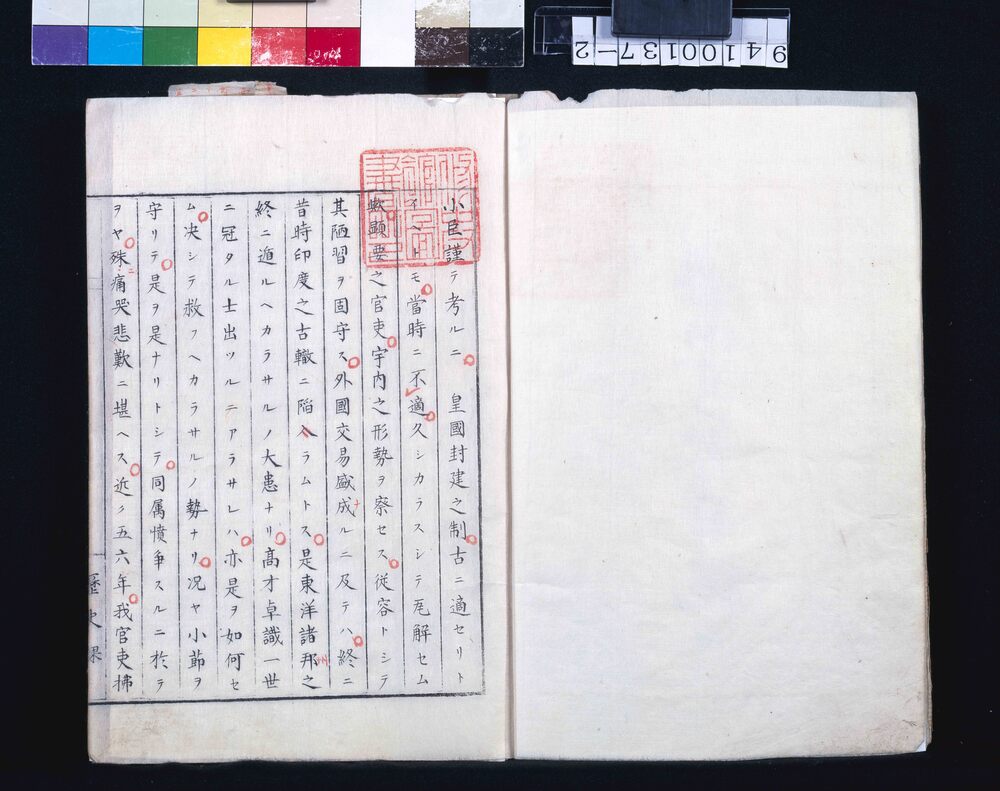 小臣謹テ考ルニ　皇國封建之制古ニ適セリト
イヘトモ當時ニ不適久シカラスシテ瓦解セム
歟顕要之官吏宇内之形勢ヲ察セス従容トシテ
其陋習ヲ固守ス外國交易盛成ルニ及テハ終ニ
昔時印度之古轍ニ陥入ラムトス是東洋諸邦之
終ニ遁ルヘカラサルノ大患ナリ高才卓識一世
ニ冠タル士出ツルニアラサレハ亦是ヲ如何セ
ム决シテ救フヘカラサルノ勢ナリ况ヤ小節ヲ
守リテ是ヲ是ナリトシテ同属憤争スルニ於テ
ヲヤ殊ニ痛哭悲歎ニ堪ヘス近ク五六年我官吏拂
歴史課
9410010037-2